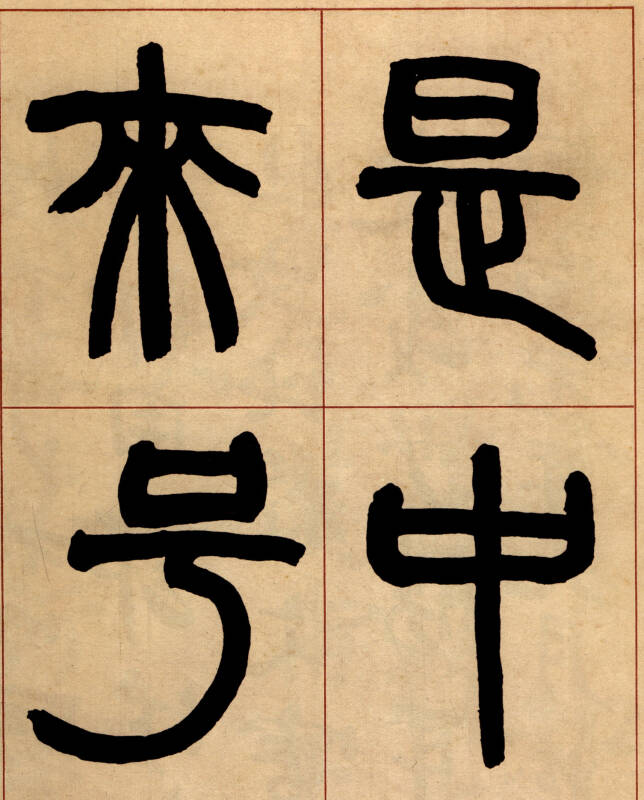 是中
來号